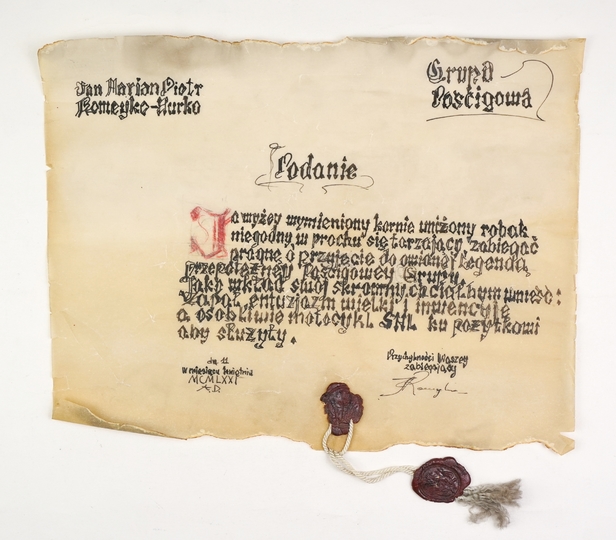 Jan Marian Piotr
Romeyko-Hurko
Grupa
Pościgowa
Podanie
Ja wyżey wymieniony kornie uniżony robak
niegodny, w prochu się tarzający, zabiegać
pragnę o przyjęcie do owianej legendą
przepotężney Pościgowey Grupy.
Jako wkład swój skromny chciałbym wnieść:
zapał, entuzjazm wielki, inwencyję
a osobliwie motocykl SHL ku pożytkowi
aby służyły.
dn. 11
w miesiącu kwietniu
MCMLXXI
A.D.
Przychylności Waszey
zabiegający